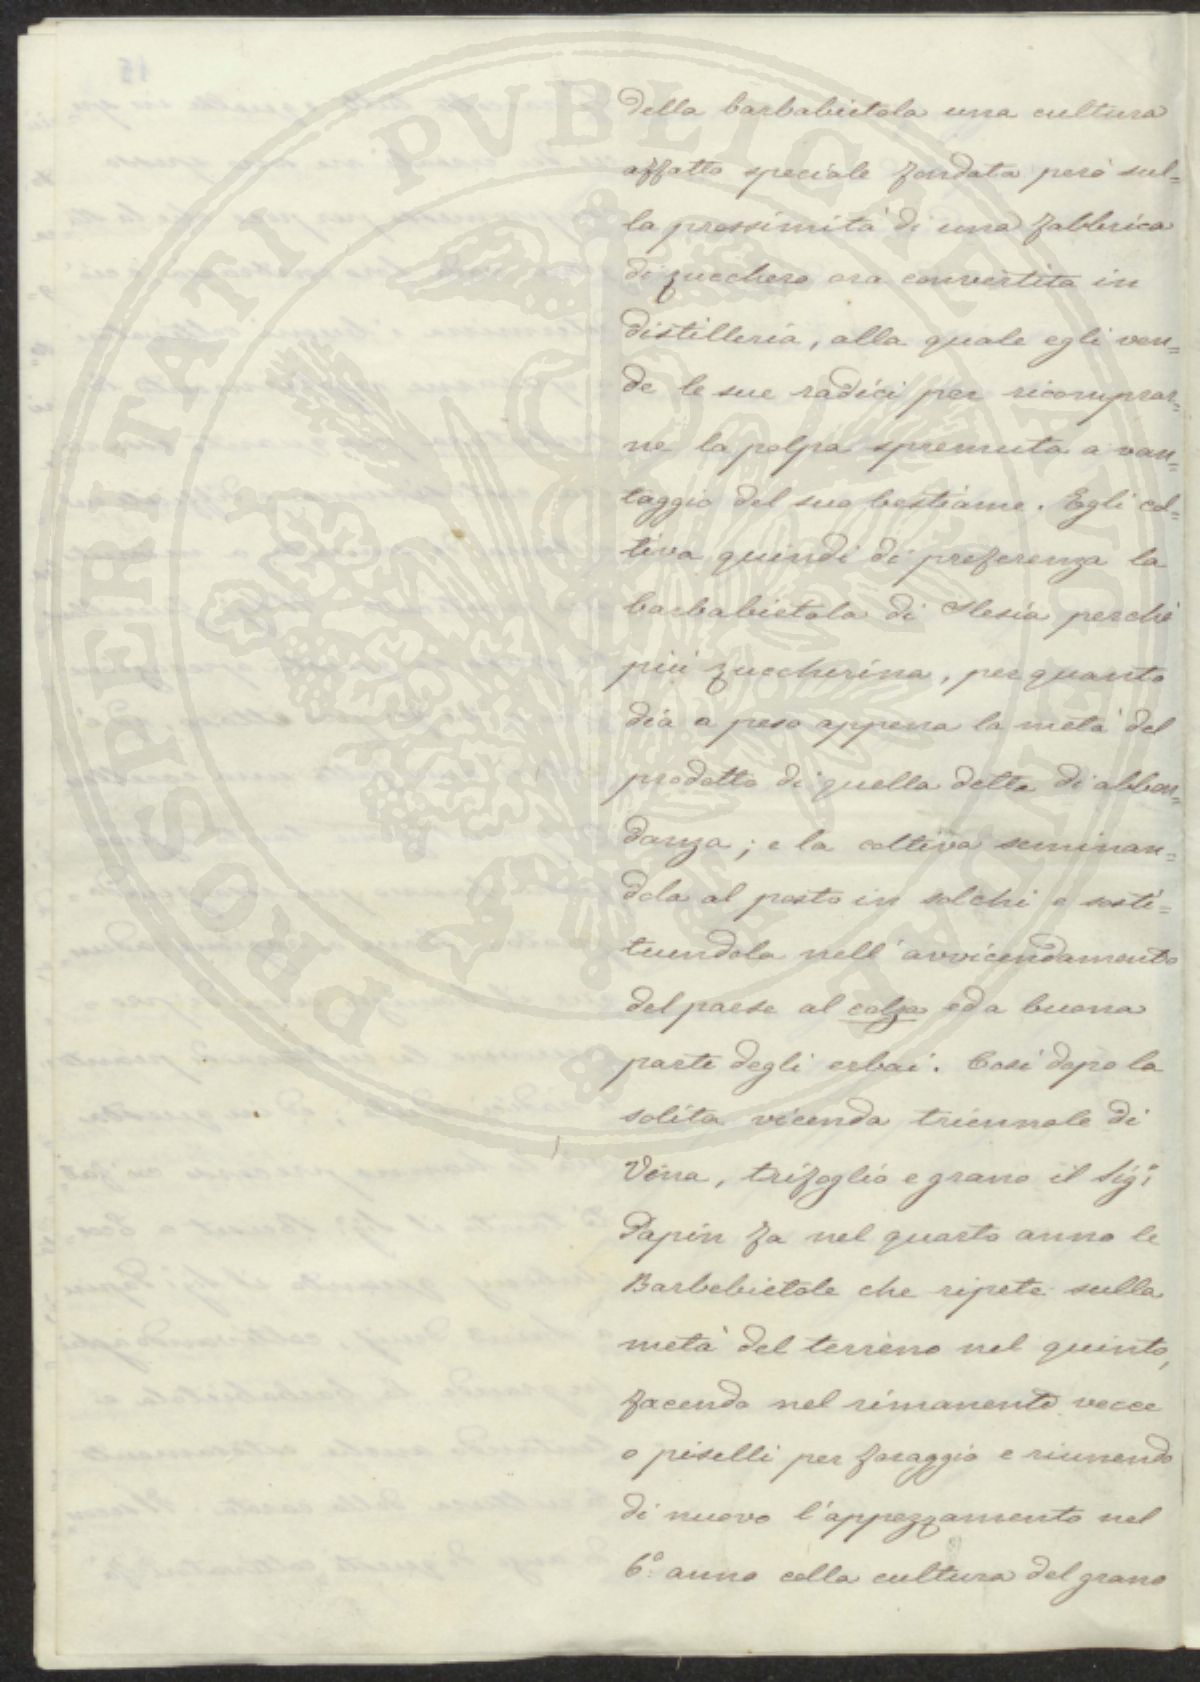 della barbabietola una cultura
affatto speciale fondata però sul=
la prossimità di una fabbrica
di zucchero ora convertita in
distilleria, alla quale egli ven=
de le sue radici per ricomprar=
ne la polpa spremuta a van=
taggio del suo bestiame. Egli col=
tiva quindi di preferenza la
barbabietola di Slesia perchè
più zuccherina, per quanto
dia a peso appena la metà del
prodotto di quella detta di abbon=
danza; e la coltiva seminan=
dola al posto in solchi e sosti=
tuendola nell'avvicendamento
del paese al colza ed a buona
parte degli erbai. Così dopo la
solita vicenda triennale di
Vena, trifoglio e grano il Sig.r
Papin fa nel quarto anno le
Barbebietole che ripete sulla
metà del terreno nel quinto,
facendo nel rimanente vecce
o piselli per foraggio e riunendo
di nuovo l'appezzamento nel
6.o anno colla cultura del grano
PROSPERITATI PVBLICAE AVGENDAE